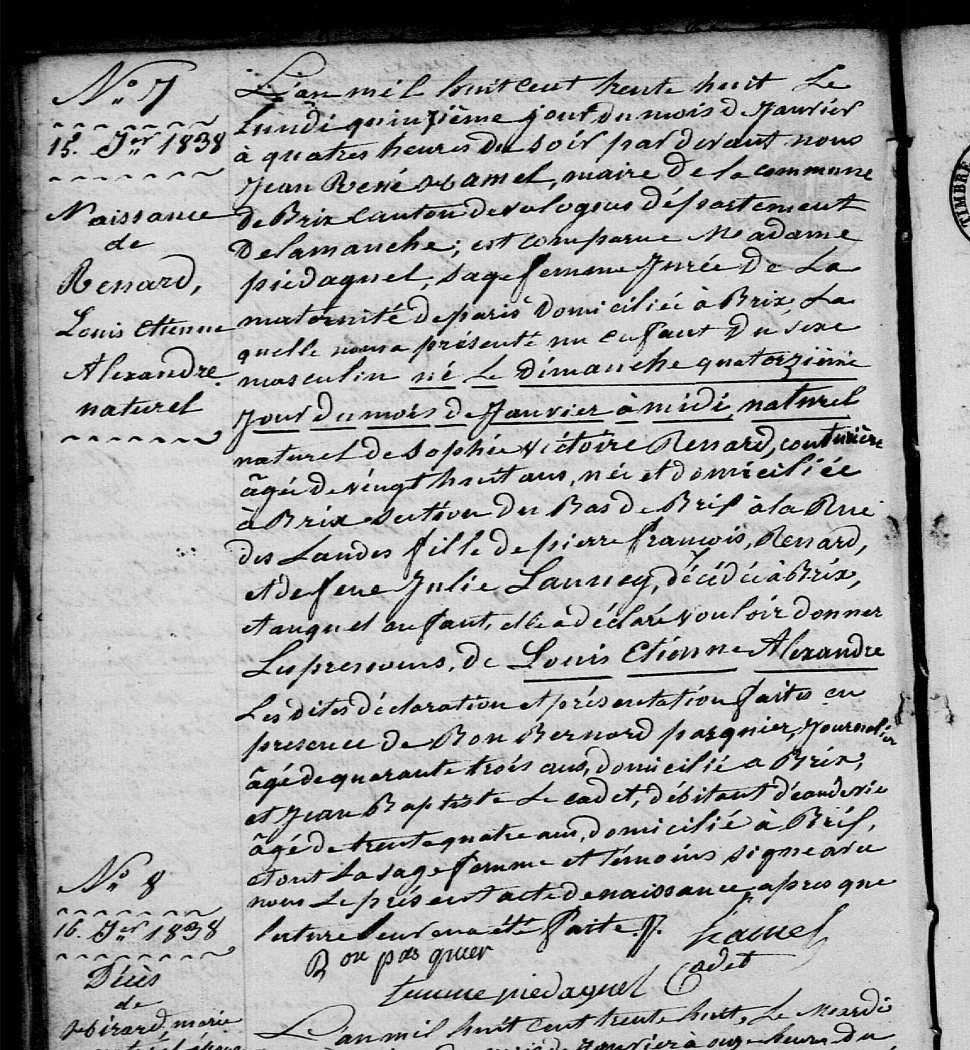 N.° 7
15. J.er 1838
Naissance
de
Renard,
Louis Etienne
Alexandre
naturel
L'an mil huit cent trente huit Le
Lundi quinzième jour du mois d Janvier
à quatres heures du soir par devant nous
Jean René hamel, maire de la commune
de Brix canton de valognes département
De la manche; est comparue Madame
piedagnel, sage femme Jurée De La
maternité de paris Domiciliée à Brix, La
quelle nous a présenté un enfant Du sexe
masculin né Le Dimanche quatorzième
Jour du mois de Janvier à midi, naturel
naturel de sophie victoire Renard, couturière
âgé De vingt huit ans, née et domiciliée
à Brix section du Bas de Brix à la Rue
des Landes fille de pierre françois, Renard,
et de feue Julie Launey, décédée à Brix,
et auquel enfant, elle a déclaré vouloir donner
Les prenoms, de Louis Etienne Alexandre
Les dites déclaration et présentation faites en
presence de Bon Bernard pasquier, Journalier
âgé de quarante trois ans, domicilié a Brix,
et Jean Baptiste Le cadet, débitant d'eau de vie
âgé de trente quatre ans, domicilié à Brix,
et ont La sage femme et témoins signé avec
nous Le présent acte de naissance, apres que
lecture leur en a été faite.
hamel
Bon pasquier
Cadet
femme piedagnel
N.° 8
16. J.er 1838
Décès
de
marie
L'an mil huit cent trente huit, Le Mardi
de Janvier à onze heures du
TIMBRE